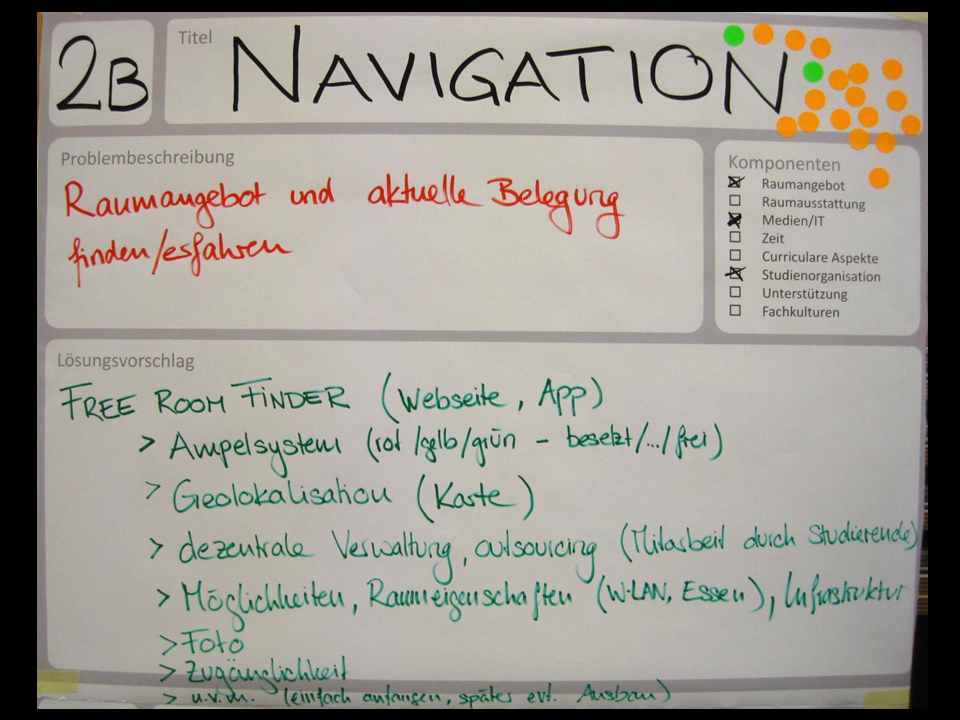 2B
Titel
NAVIGATION
Problembeschreibung
Raumangebot und aktuelle Belegung
finden/erfahren
Komponenten
Raumangebot
Raumausstattung
Medien/IT
Zeit
Curriculare Aspekte
Studienorganisation
Unterstützung
Fachkulturen
Lösungsvorschlag
FREE ROOM FINDER (Webseite, App)
> Ampelsystem (rot/gelb/grün - besetzt/.../frei)
> Geolokalisation (Karte)
> dezentrale Verwaltung, outsourcing (Mitarbeit durch Studierende)
> Möglichkeiten, Raumeigenschaften (W-LAN, Essen), Infrastruktur
> Foto
> Zugänglichkeit
> u.v.m. (einfach anfangen, später evt. Ausbau)